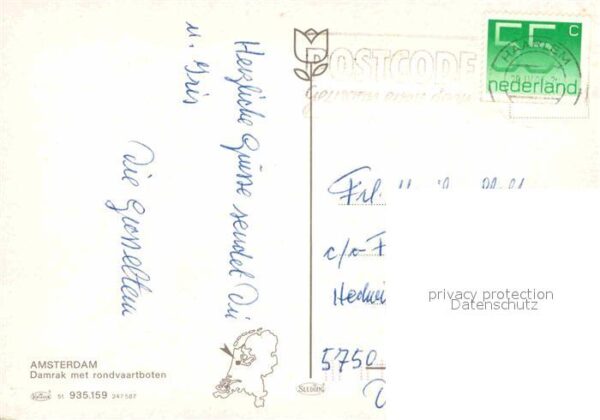 Herzliche Grüsse sendet Dir
u. Iris
Die Grosseltern
POSTCODE
55 c
nederland
HAARLEM
Frl.
c/o F
Hedwi
5750
privacy protection
Datenschutz
AMSTERDAM
Damrak met rondvaartboten
st 935.159 247587